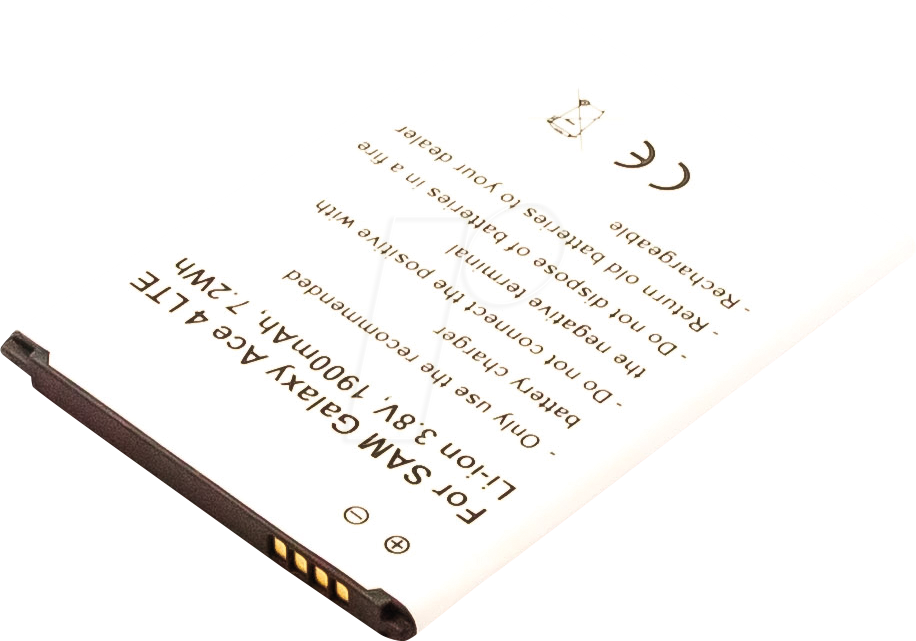 For SAM Galaxy Ace 4 LTE
Li-ion 3.8V, 1900mAh, 7.2Wh
- Only use the recommended
battery charger
- Do not connect the positive with
the negative terminal
- Do not dispose of batteries in a fire
- Return old batteries to your dealer
- Rechargeable
CE